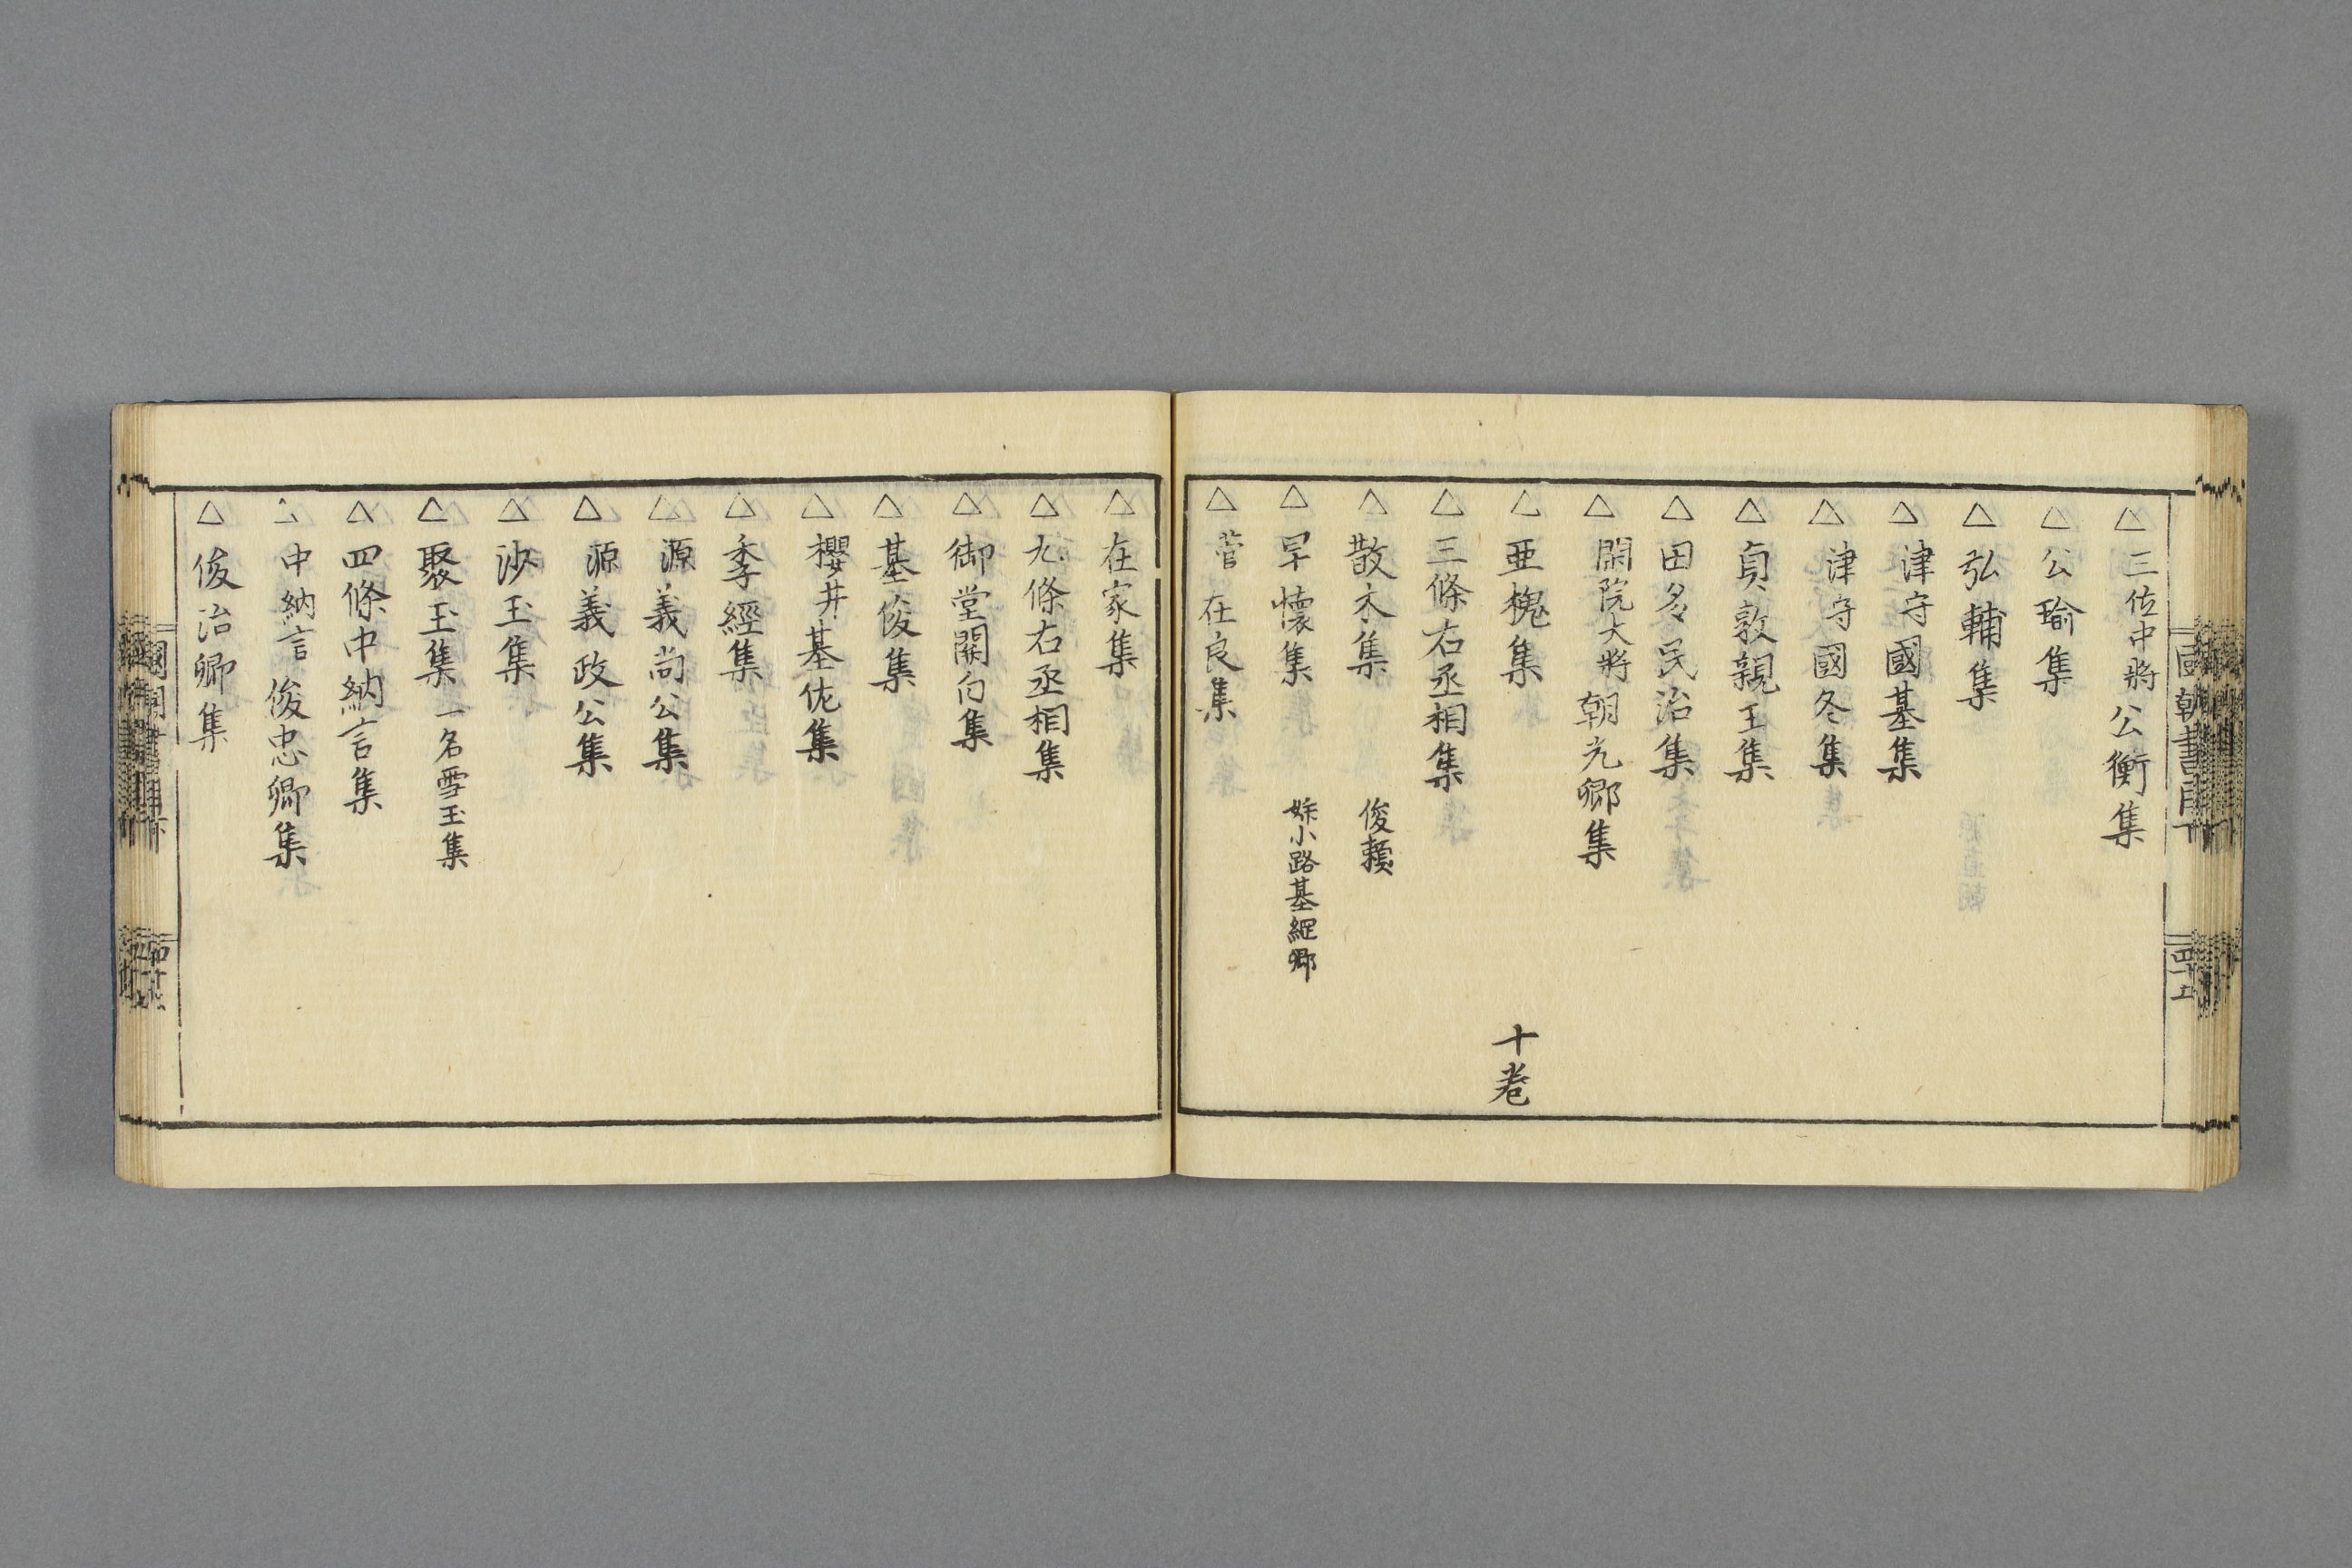 △三位中将公衡集
△公瑜集
△弘輔集
△津守國基集
△津守國冬集
△貞敦親王集
△田多民治集
△閑院大將朝光卿集
△亜槐集 十卷
△三條右丞相集
△散木集 俊賴
△早懷集 姉小路基綱卿
△菅在良集
△在家集
△九條右丞相集
△御堂關白集
△基俊集
△櫻井基佐集
△季經集
△源義尚公集
△源義政公集
△沙玉集
△聚玉集 一名雪玉集
△四條中納言集
△中納言俊忠卿集
△俊治卿集